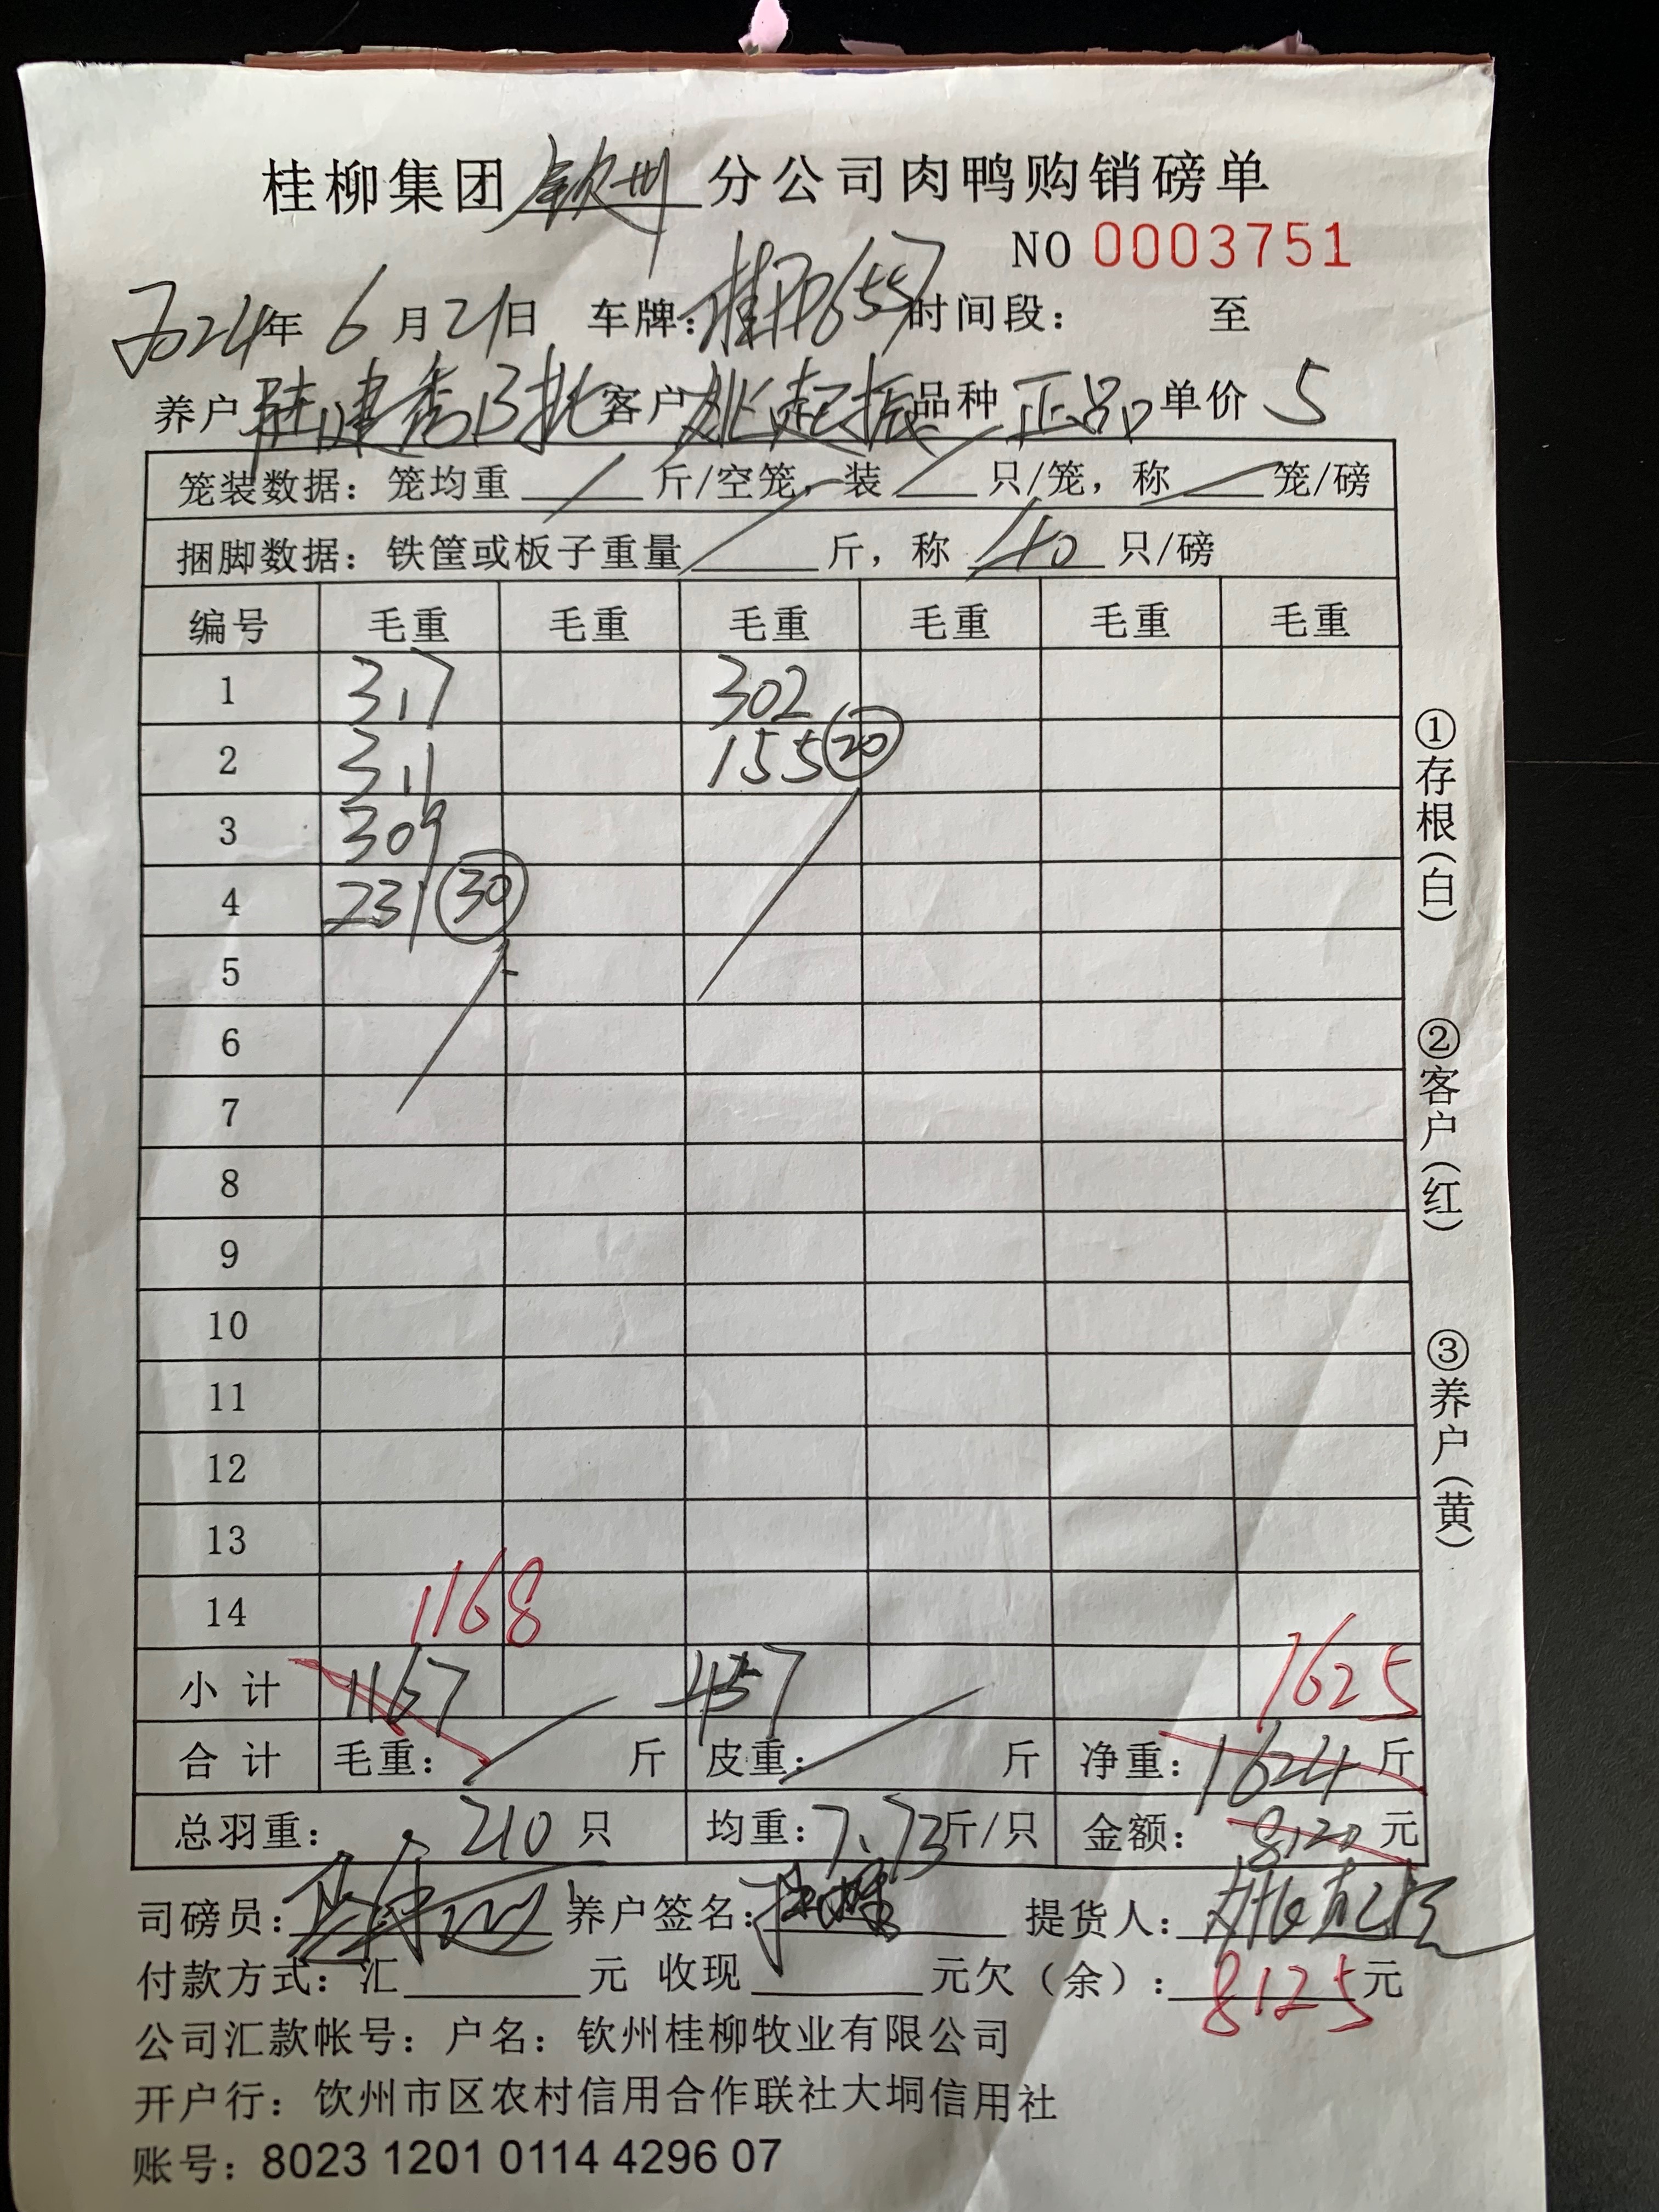 桂柳集团钦州分公司肉鸭购销磅单
NO 0003751
2024年6月21日 车牌: 时间段: 至
养户 陆建秀B批 客户 姚起振 品种 正品 单价 5
笼装数据: 笼均重 斤/空笼, 装 只/笼, 称 笼/磅
捆脚数据: 铁筐或板子重量 斤, 称 40 只/磅
编号 毛重 毛重 毛重 毛重 毛重 毛重
1 317 302
2 311 155 20
3 309
4 231 30
5
6
7
8
9
10
11
12
13
14 1168
小计 1167 457 1625
合计 毛重: 斤 皮重: 斤 净重: 1624 斤
总羽重: 210 只 均重: 7.73 斤/只 金额: 8120 元
司磅员: 养户签名: 提货人: 姚起振
付款方式: 汇 元 收现 元欠(余): 8125 元
公司汇款帐号: 户名: 钦州桂柳牧业有限公司
开户行: 钦州市区农村信用合作联社大垌信用社
账号: 8023 1201 0114 4296 07
①存根(白)
②客户(红)
③养户(黄)